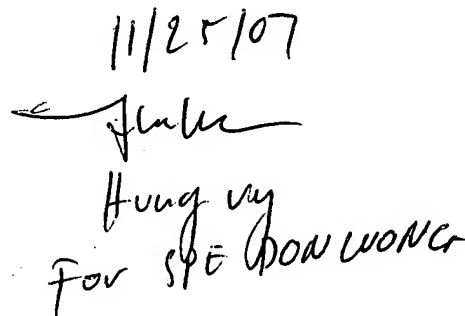 11/25/07
Hung Vy
For SPE DON WONG